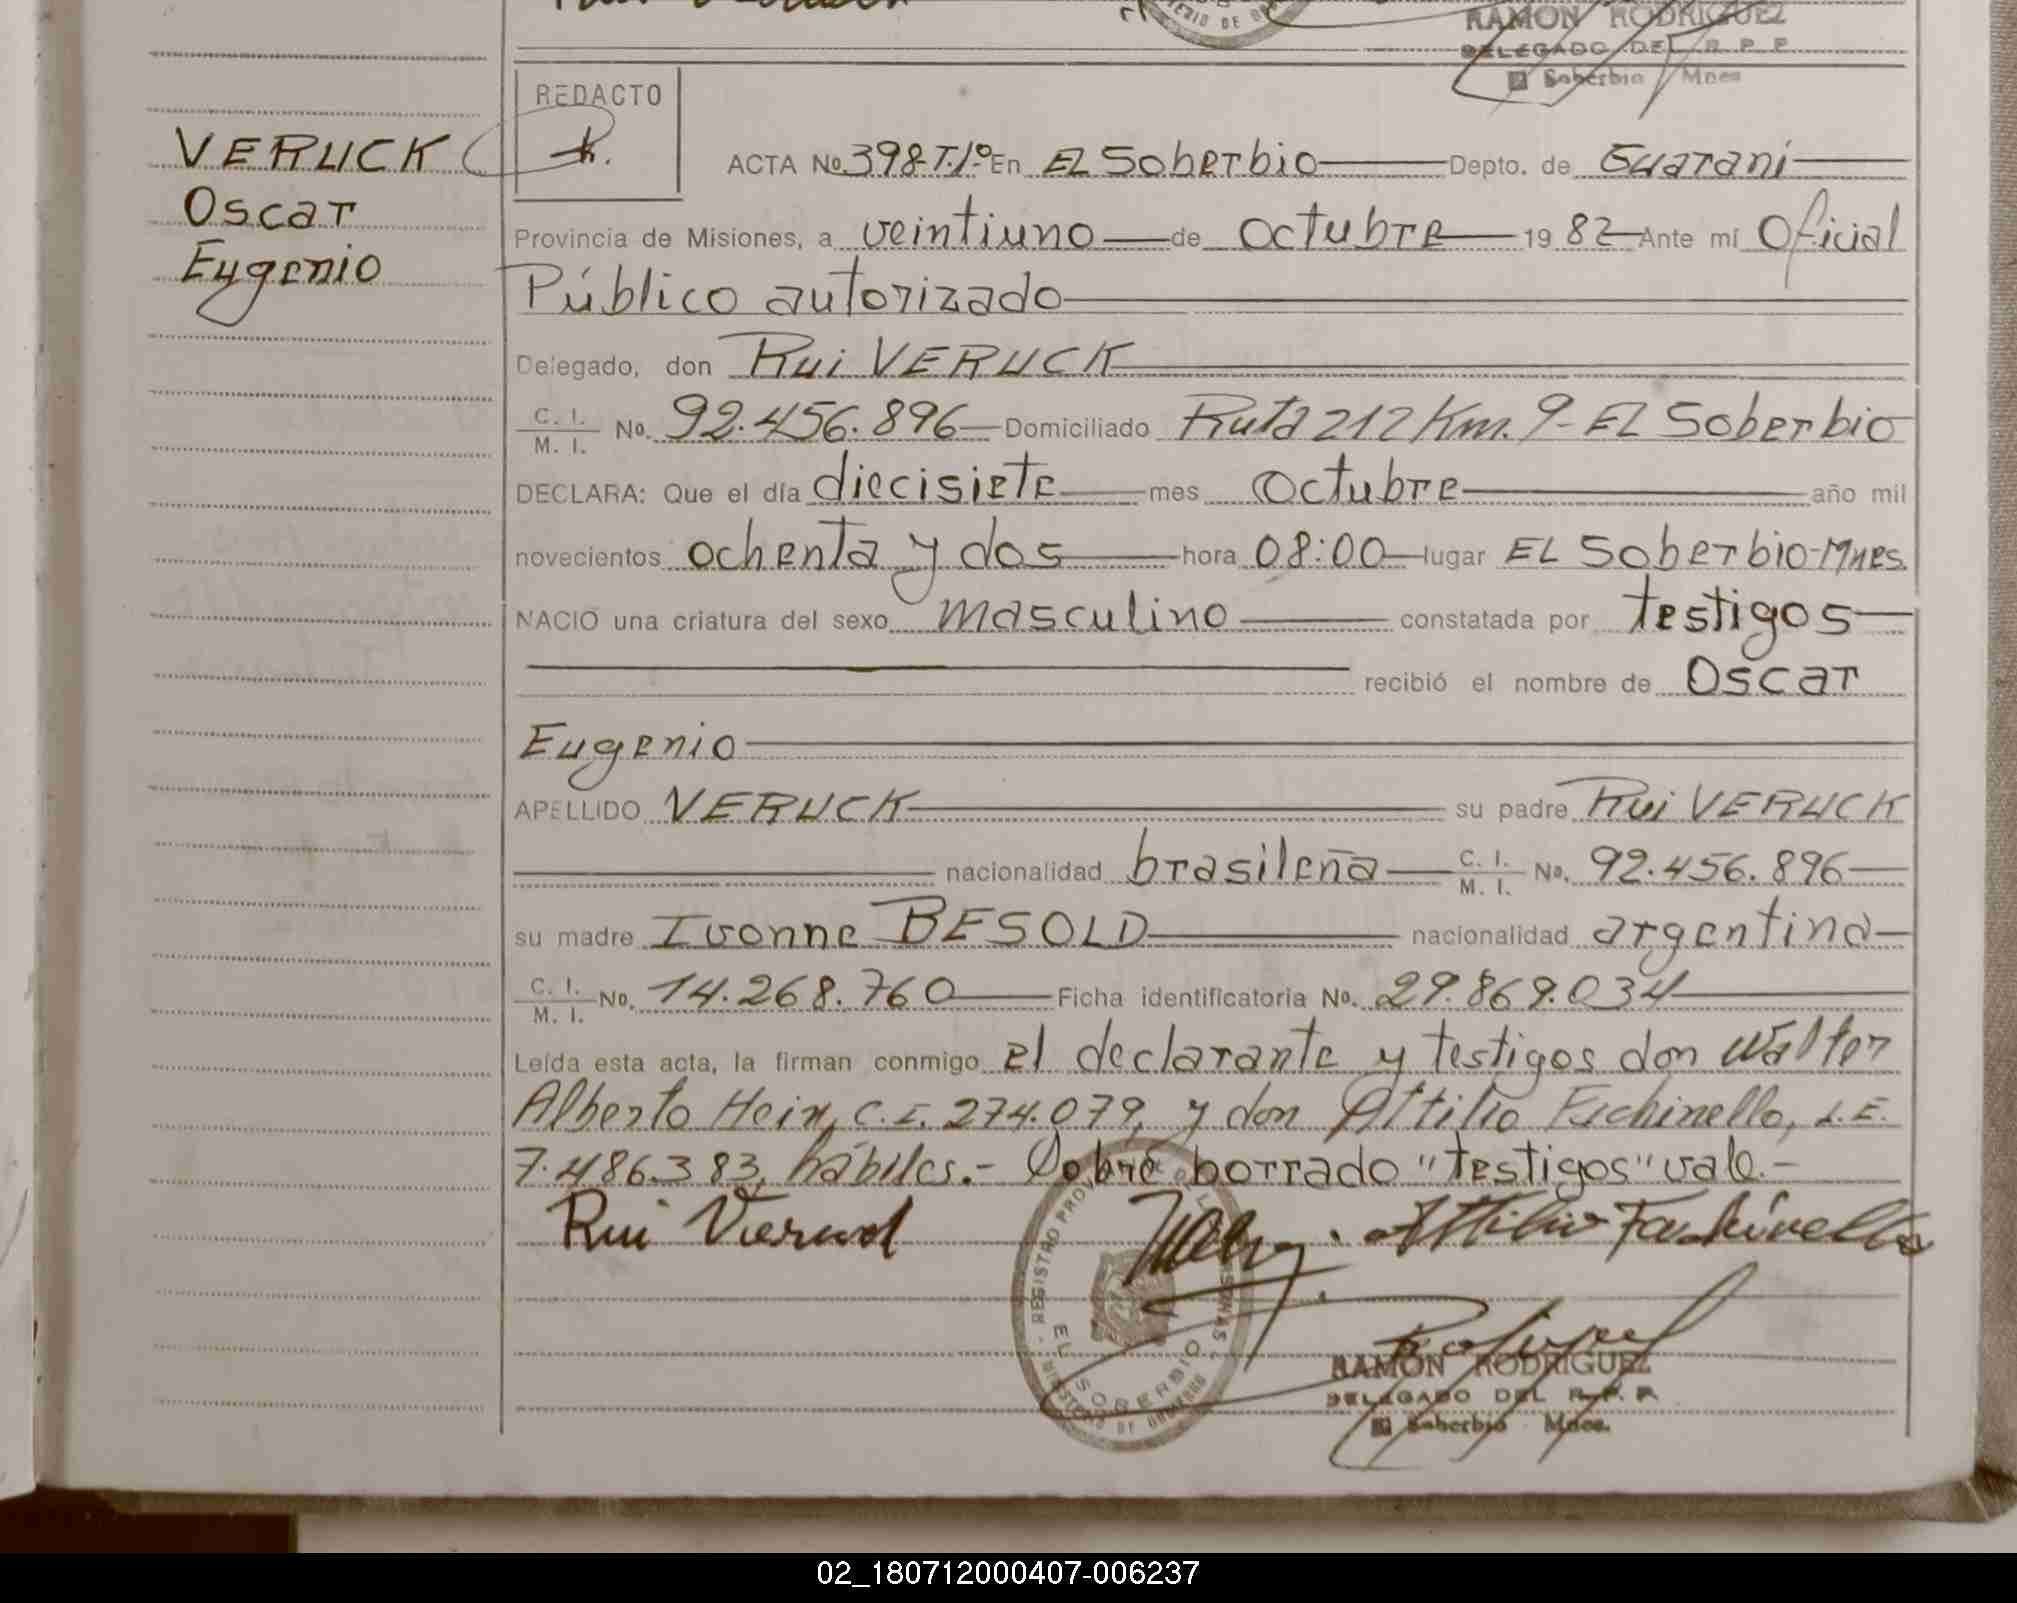 RAMON RODRIGUEZ
DELEGADO DEL R. P. P.
El Soberbio Mnes
REDACTO
VERUCK
Oscar
Eugenio
ACTA No. 398-T.1º En EL Soberbio Depto. de Guaraní
Provincia de Misiones, a veintiuno de octubre 19 82 Ante mí Oficial
Público autorizado
Delegado, don Rui VERUCK
C. I. / M. I. No. 92.456.896 Domiciliado Ruta 212 Km. 9- EL Soberbio
DECLARA: Que el día diecisiete mes octubre año mil
novecientos ochenta y dos hora 08:00 lugar EL Soberbio-Mnes.
NACIO una criatura del sexo masculino constatada por testigos
recibió el nombre de Oscar
Eugenio
APELLIDO VERUCK su padre Rui VERUCK
nacionalidad brasileña C. I. / M. I. No. 92.456.896
su madre Ivonne BESOLD nacionalidad argentina
C. I. / M. I. No. 14.268.760 Ficha identificatoria No. 29.869.034
Leída esta acta, la firman conmigo el declarante y testigos don Walter
Alberto Hein, C.I. 274.079, y don Attilio Fachinello, L.E.
7.486.383, hábiles.- Sobre borrado "testigos" vale.-
Rui Veruck
Attilio Fachinello
REGISTRO PROV
EL SOBERBIO
MINISTERIO DE GOBIERNO
RAMON RODRIGUEZ
DELEGADO DEL R. P. P.
El Soberbio Mnes.
02_180712000407-006237